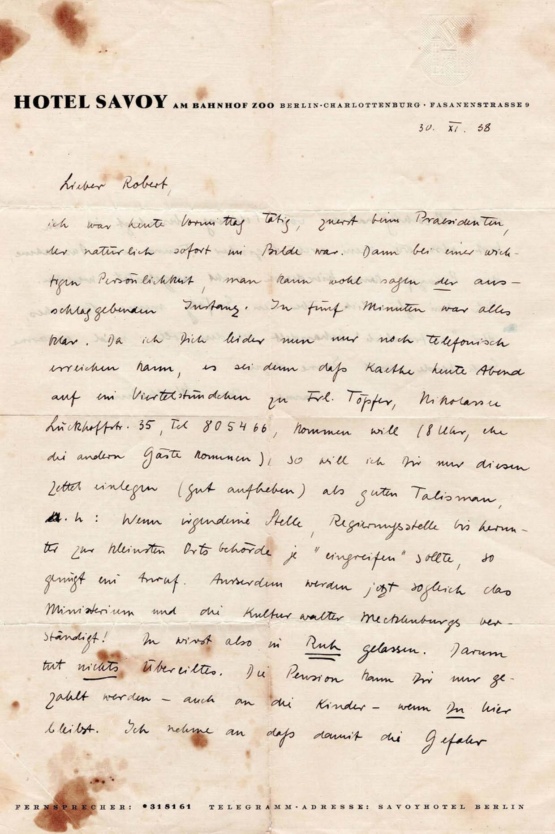 HOTEL SAVOY AM BAHNHOF ZOO BERLIN-CHARLOTTENBURG · FASANENSTRASSE 9
30. XI. 38
Lieber Robert,
ich war heute Vormittag tätig, zuerst beim Praesidenten,
der natürlich sofort im Bilde war. Dann bei einer wich-
tigen Persönlichkeit, man kann wohl sagen der aus-
schlaggebenden Instanz. In fünf Minuten war alles
klar. Da ich Dich leider nun nur noch telefonisch
erreichen kann, es sei denn daß Kaethe heute Abend
auf ein Viertelstündchen zu Frl. Töpfer, Nikolassee
Lückhoffstr. 35, Tel 805466, kommen will (8 Uhr, ehe
die andern Gäste kommen), so will ich Dir nur diesen
Zettel einlegen (gut aufheben) als guten Talisman,
d.h: Wenn irgendeine Stelle, Regierungsstelle bis herun-
ter zur kleinsten Ortsbehörde je "eingreifen" sollte, so
genügt ein Anruf. Ausserdem werden jetzt sogleich das
Ministerium und die Kulturwalter Mecklenburgs ver-
ständigt! Du wirst also in Ruh gelassen. Darum
tut nichts Übereiltes. Die Pension kann Dir nur ge-
zahlt werden – auch an die Kinder – wenn Du hier
bleibst. Ich nehme an daß damit die Gefahr
FERNSPRECHER: *318161 TELEGRAMM-ADRESSE: SAVOYHOTEL BERLIN